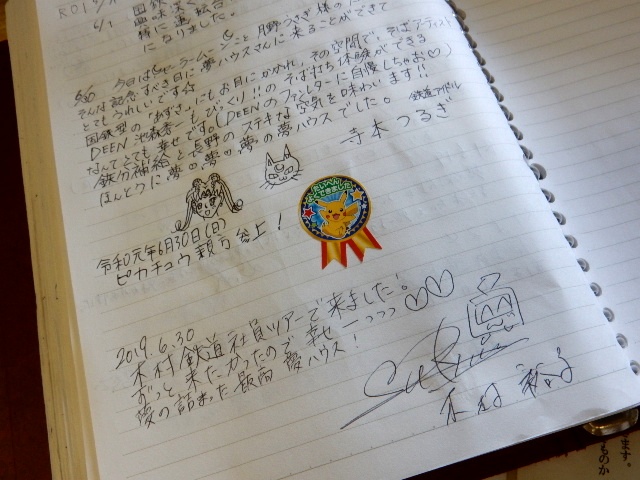 6/1 国鉄
になりました。
6/30 今日はセーラームーンこと月野うさぎ様の
そんな記念すべき日に夢ハウスさんに来ることができて
とてもうれしいです☆
国鉄型の「あずさ」にもお目にかかれ、その空間で、そばアテンド
DEEN 池森秀一もびっくり!!のそば打ち体験ができる
なんてとても幸せです。(DEENのファンレターに自慢しちゃお♡)
鉄分補給と長野のステキな空気を味わいます!!
ほんとうに夢の夢の夢ハウスでした。
鉄道アイドル
寺本 つるぎ
たいへん
よくできました
令和元年6月30日(日)
ピカチュウ親方 参上!
2019.6.30
木村鉄道社員ツアーで来ました!
ずっと来たかったので幸せーっっっ♡♡
愛の詰まった飯南 夢ハウス!
木村 裕子
ます。
ものか